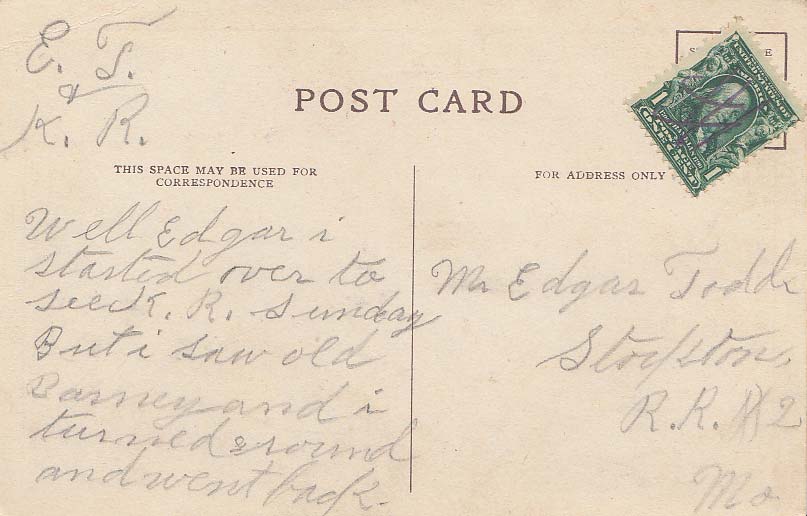 E. T.
&
K. R.
POST CARD
THIS SPACE MAY BE USED FOR
CORRESPONDENCE
FOR ADDRESS ONLY
Well Edgar i
started over to
see K. R. Sunday
But i saw old
Barney and i
turned around
and went back.
Mr Edgar Todd
Stockton,
R. R. # 2
Mo
1
1